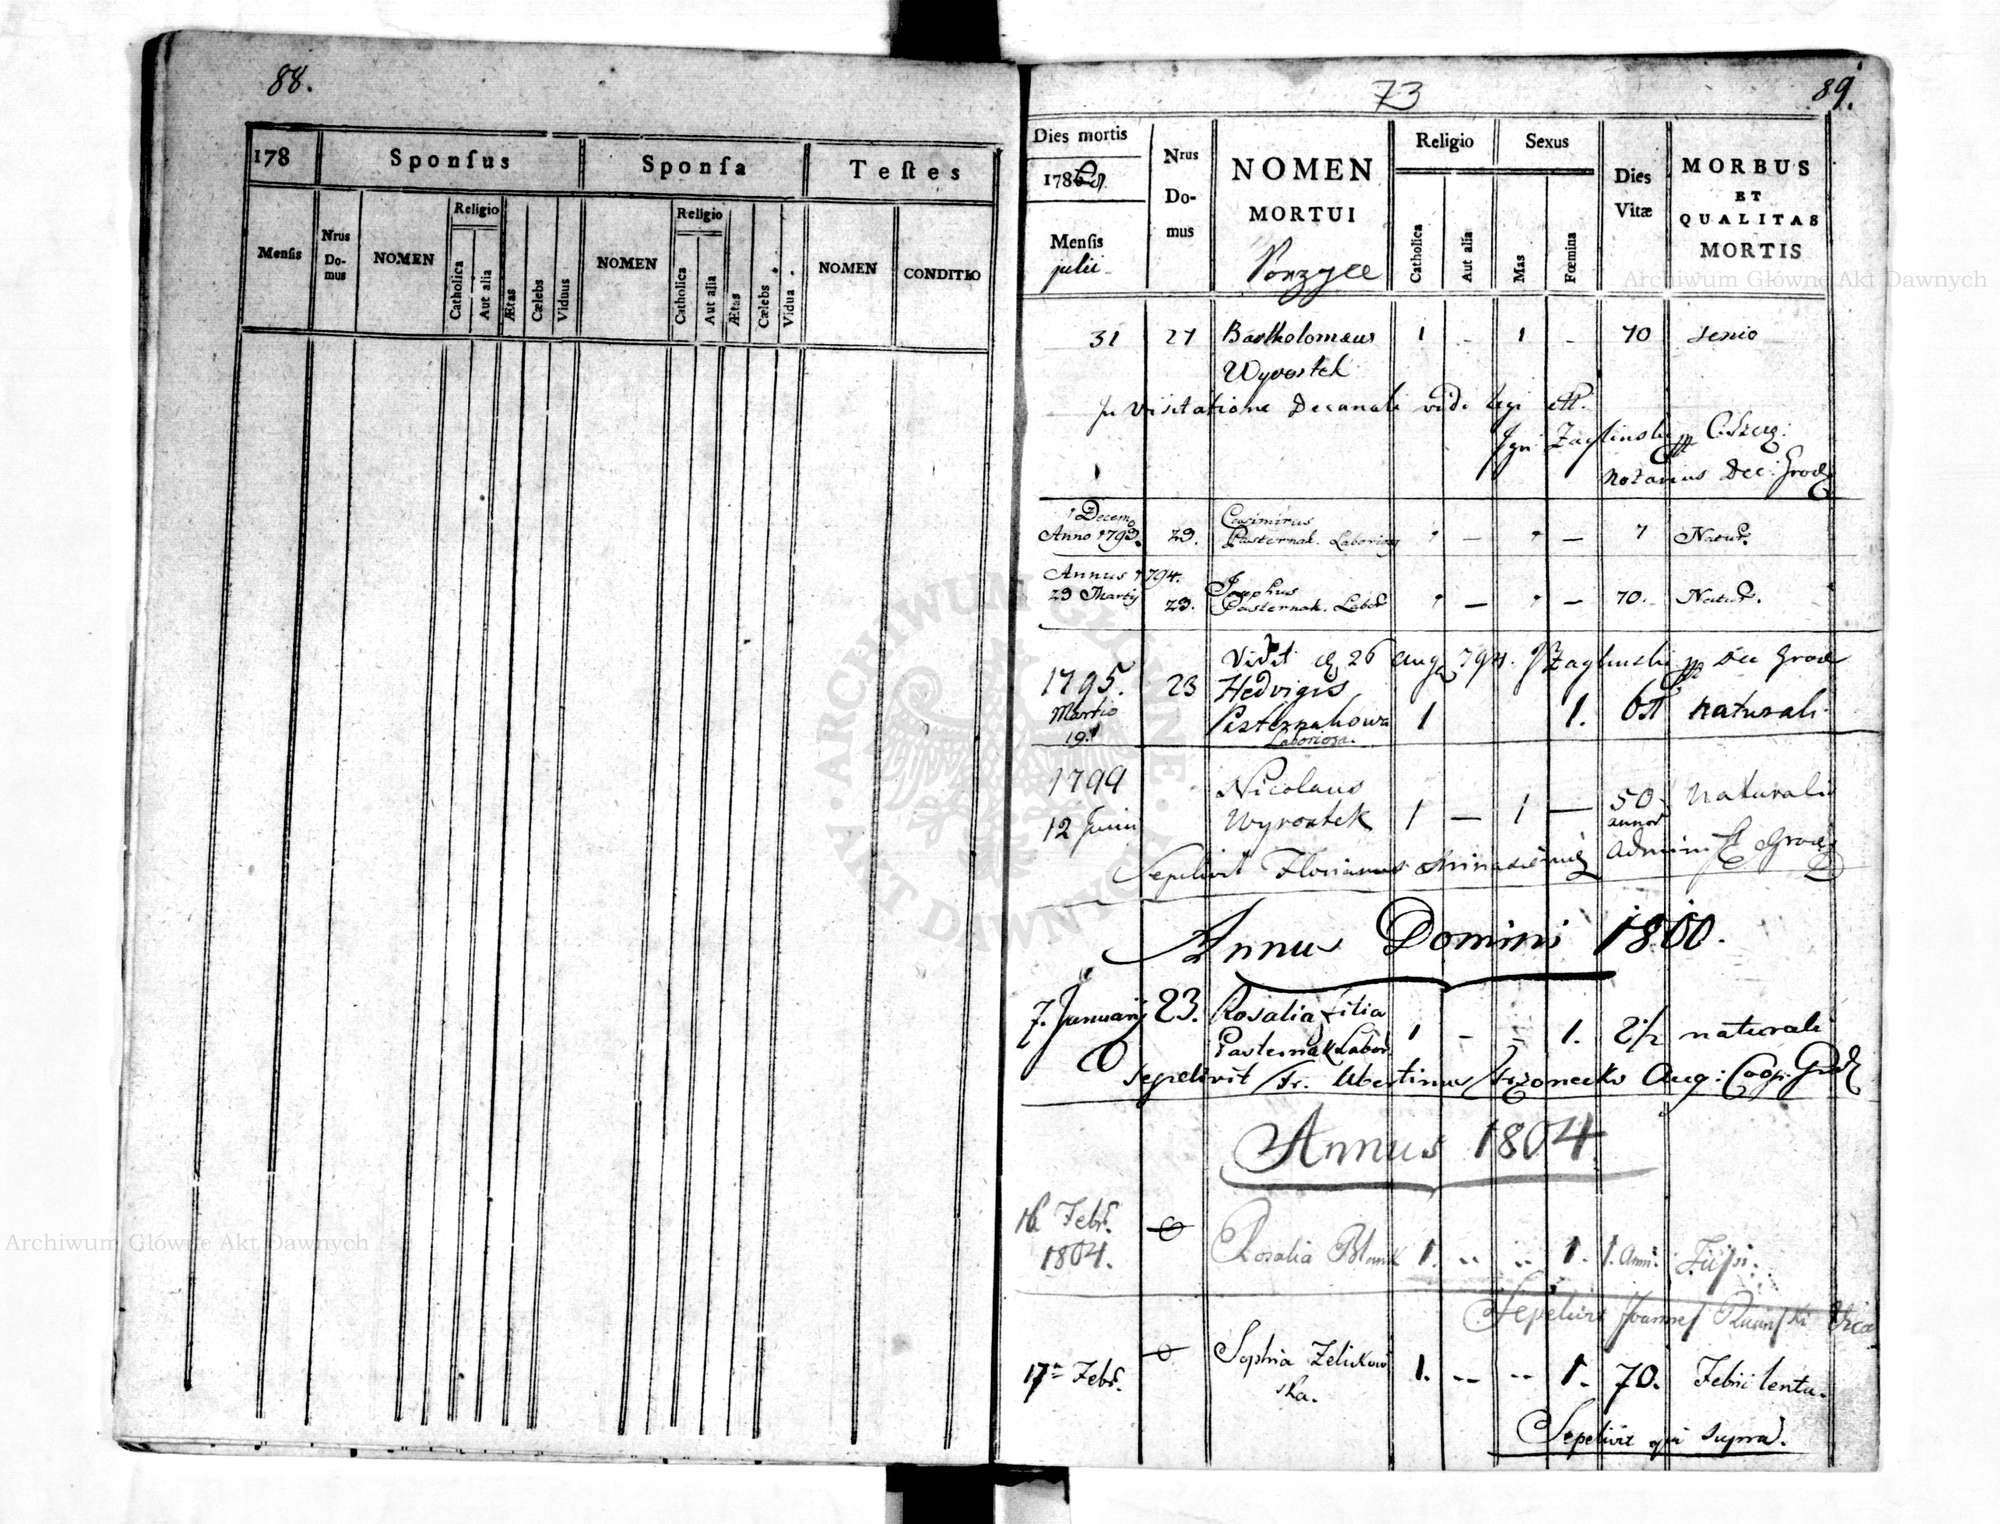 88.
178
Sponsus
Sponsa
Testes
Mensis
Nrus Domus
NOMEN
Religio
Catholica
Aut alia
Ætas
Cælebs
Viduus
NOMEN
Religio
Catholica
Aut alia
Ætas
Cælebs
Vidua
NOMEN
CONDITIO
73
89.
Dies mortis
178
Mensis
julii
Nrus
Do-
mus
NOMEN
MORTUI
Religio
Catholica
Aut alia
Sexus
Mas
Fœmina
Dies
Vitæ
MORBUS
ET
QUALITAS
MORTIS
31 27 Bartholomæus 1 - 1 - 70 senio
Wyrostek
In Visitatione Decanali vidi legi
Notarius Dec: Grod
1 Decem
Anno 179 23. Casimirus
Pasternak. Laborios 1 — 1 — 7 Natur.
Annus 1794.
23 Martij 23. Josephus
Pasternak. Labor 1 — 1 — 70. Natur.
Vidit 26 aug 794. Zaglinski Dec Grod
1795. 23 Hedvigis
Martio Pasternakowa 1 1. naturali
19. Laboriosa.
1799 Nicolaus
12 Junii Wyrostek 1 — 1 — 50 naturalis
annor
Sepelivit Florianus
Annus Domini 1800.
7. Januarij 23. Rosalia filia
Pasternak Labor. 1 - - 1. 2 1/2 naturali
Sepelivit Fr. Ubertinus Aug:
Annus 1804.
16 Febr.
1804. Rosalia 1. -- -- 1. 1. Anni.
Sepelivit Joannes
17 Febr. Sophia Zelikow
ska. 1. -- -- 1. 70. Febri lenta.
Sepelivit qui supra.
Archiwum Główne Akt Dawnych
Archiwum Główne Akt Dawnych
ARCHIWUM GŁÓWNE
AKT DAWNYCH